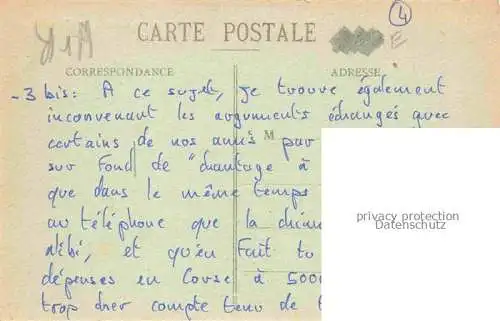 4
CARTE POSTALE
E
CORRESPONDANCE ADRESSE
- 3 bis: A ce sujet, je trouve également
inconvenant les arguments échangés avec
certains de nos amis par
M
sur fond de "chantage à
que dans le même temps
au téléphone que la
privacy protection
Datenschutz
et qu'en fait tu
dépenses en Corse à 5000
trop cher compte tenu de